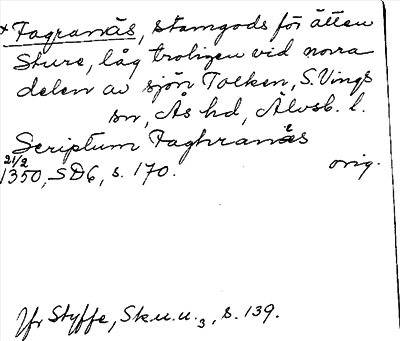 + Fagranäs, stamgods för ätten
Sture, låg troligen vid norra
delen av sjön Tolken, S. Vings
sn, Ås hd, Älvsb. l.
Scriptum Faghranæs
21/2
1350, SD6, s. 170. orig.
Jfr Styffe, Sk.u.u.3, s. 139.